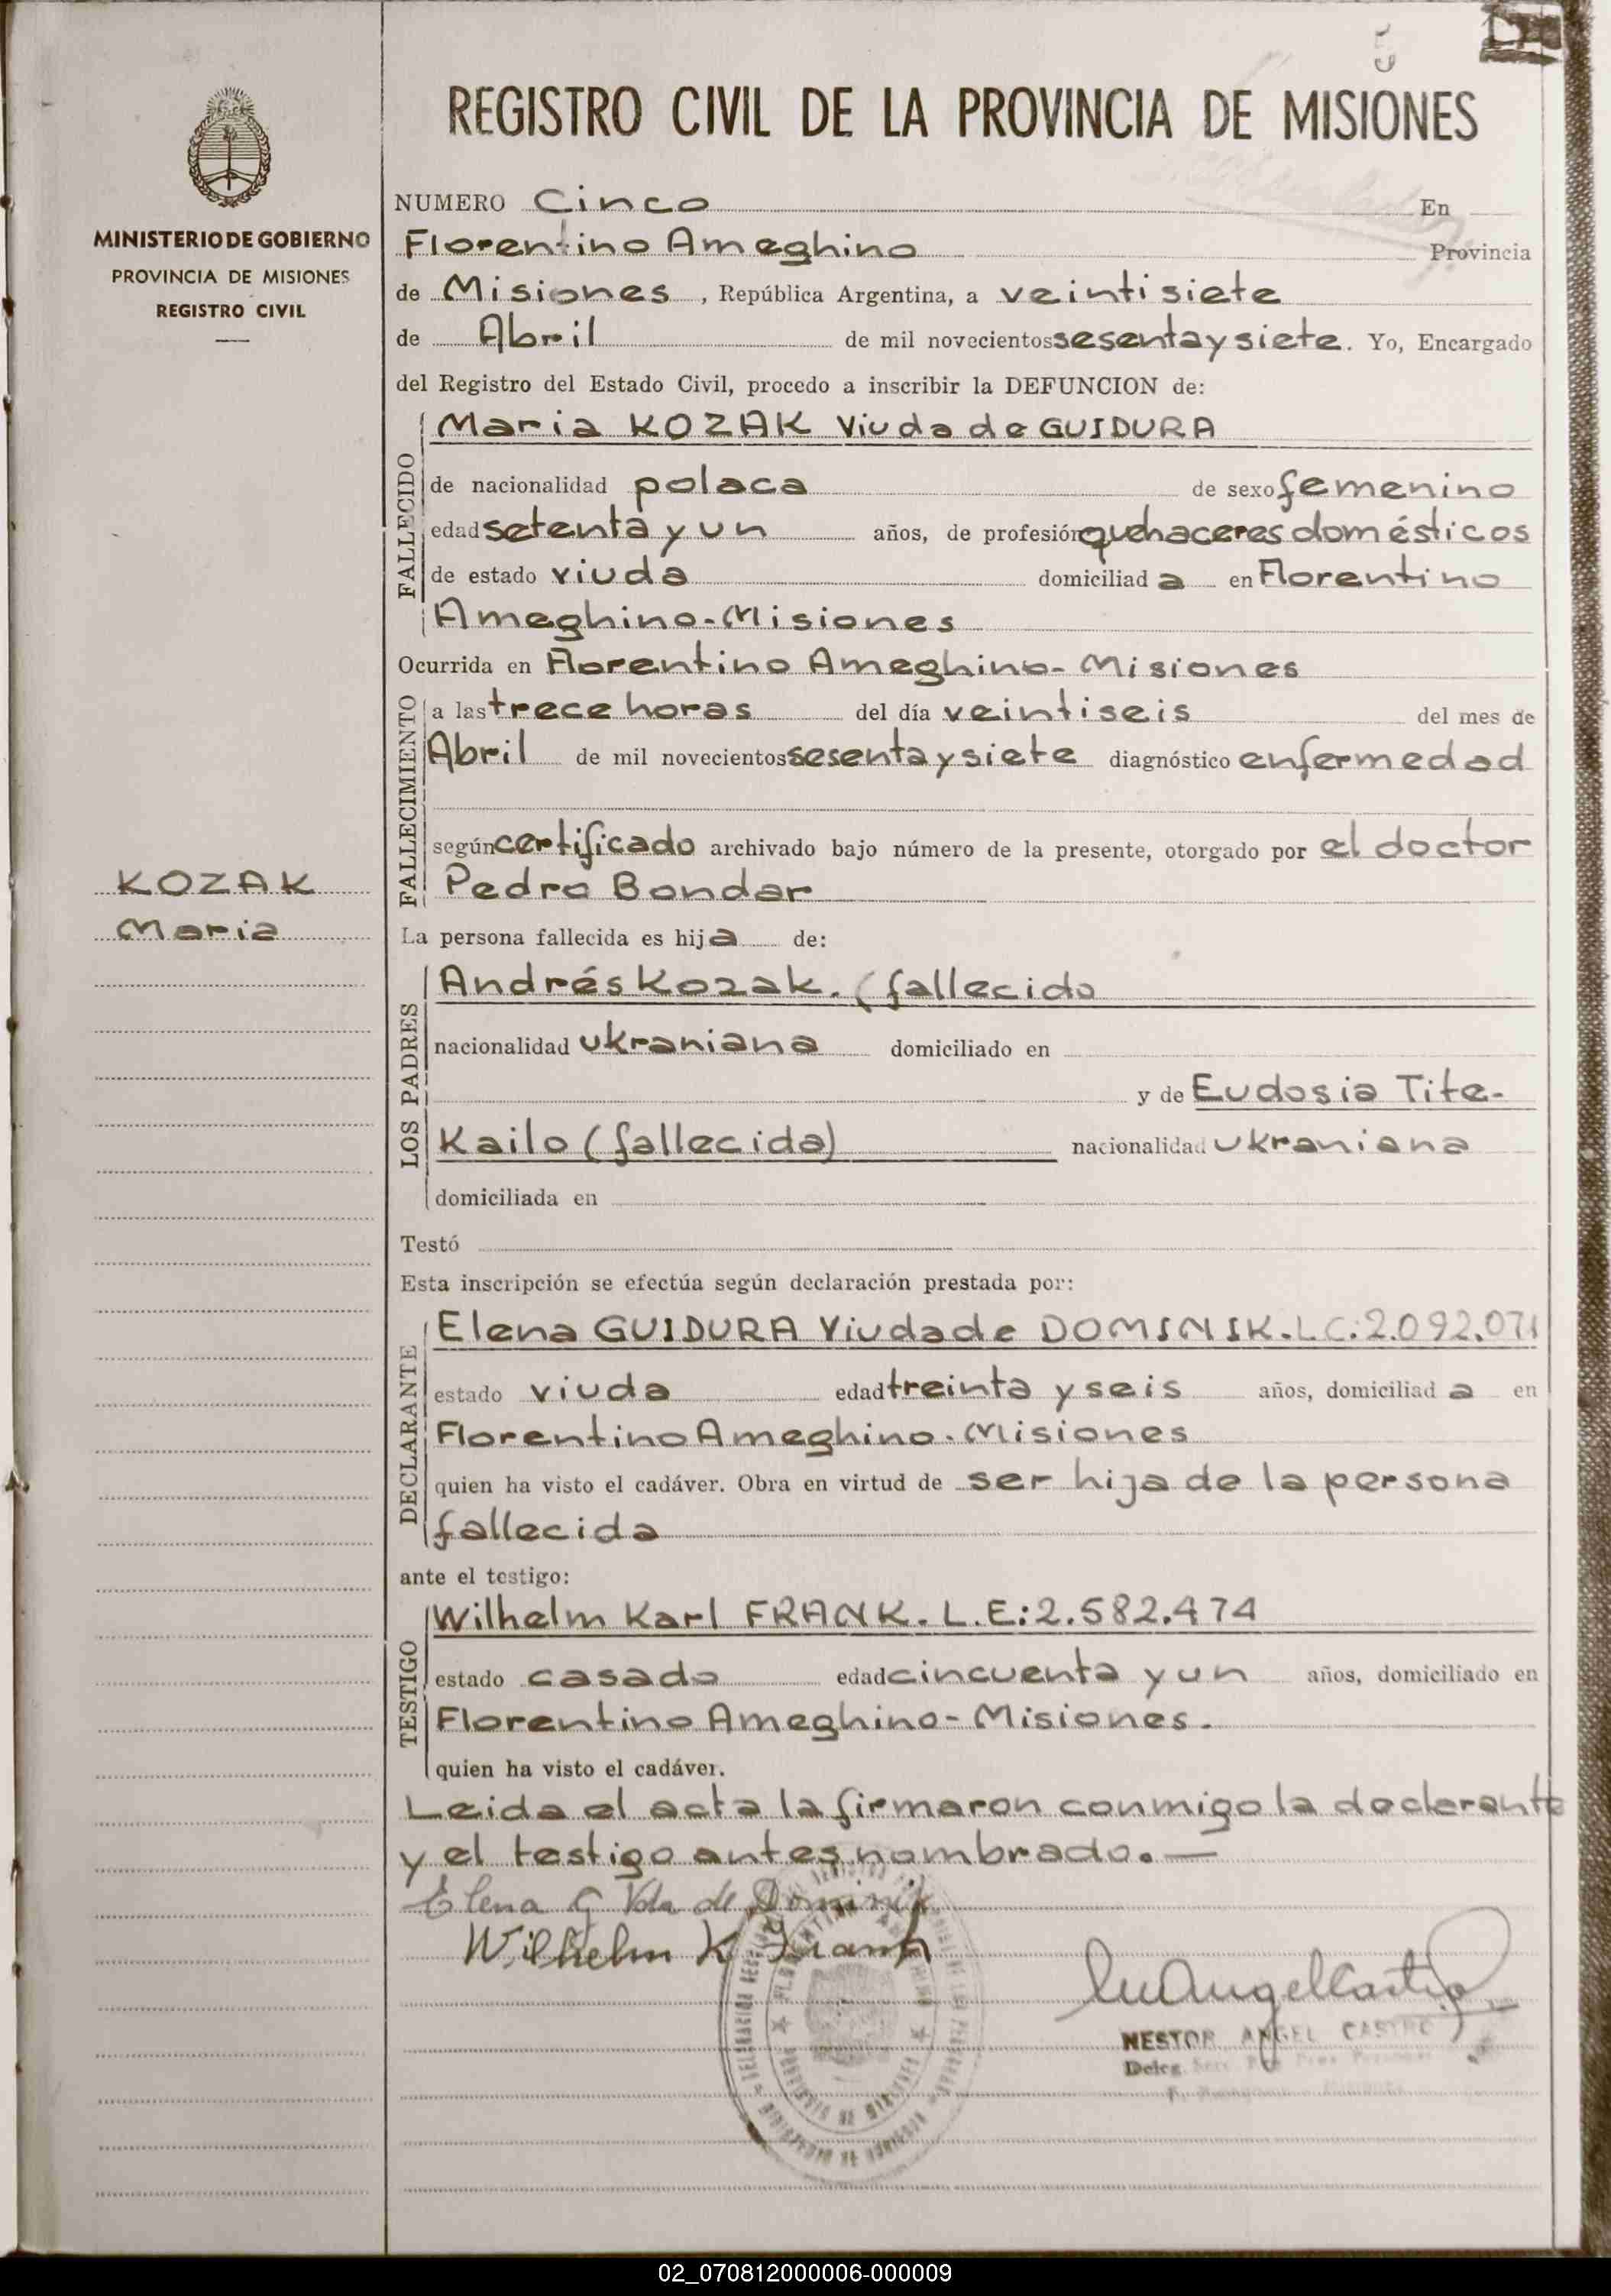 5
REGISTRO CIVIL DE LA PROVINCIA DE MISIONES
MINISTERIO DE GOBIERNO
PROVINCIA DE MISIONES
REGISTRO CIVIL
KOZAK
Maria
NUMERO Cinco En
Florentino Ameghino Provincia
de Misiones, República Argentina, a veintisiete
de Abril de mil novecientos sesenta y siete. Yo, Encargado
del Registro del Estado Civil, procedo a inscribir la DEFUNCION de:
FALLECIDO
Maria KOZAK Viuda de GUIDURA
de nacionalidad polaca de sexo femenino
edad setenta y un años, de profesión quehaceres domésticos
de estado viuda domiciliad a en Florentino
Ameghino-Misiones
Ocurrida en Florentino Ameghino-Misiones
FALLECIMIENTO
a las trece horas del día veintiseis del mes de
Abril de mil novecientos sesenta y siete diagnóstico enfermedad
según certificado archivado bajo número de la presente, otorgado por el doctor
Pedro Bondar
La persona fallecida es hija de:
LOS PADRES
Andrés Kozak. (fallecido
nacionalidad ukraniana domiciliado en
y de Eudosia Tite-
Kailo (fallecida) nacionalidad ukraniana
domiciliada en
Testó
Esta inscripción se efectúa según declaración prestada por:
DECLARANTE
Elena GUIDURA Viuda de DOMINIK. L.C:2.092.071
estado viuda edad treinta y seis años, domiciliad a en
Florentino Ameghino-Misiones
quien ha visto el cadáver. Obra en virtud de ser hija de la persona
fallecida
ante el testigo:
TESTIGO
Wilhelm Karl FRANK. L.E:2.582.474
estado casado edad cincuenta y un años, domiciliado en
Florentino Ameghino-Misiones.
quien ha visto el cadáver.
Leida el acta la firmaron conmigo la declarante
y el testigo antes nombrado.—
Elena G Vda de Dominik
Wilhelm K Frank
NESTOR ANGEL CASTRO
Deleg.
02_070812000006-000009